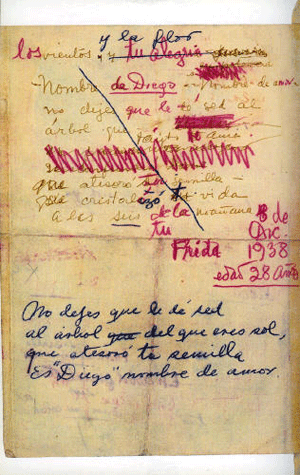 y la flor
los vientos y tu alegria
Nombre de Diego - Nombre de amor.
no dejes que le dé sed al
árbol que tanto te ama.
que atesoró tu semilla
que cristalizó tu vida
a las seis de la mañana
tu
Frida
8 de
Dic.
1938
edad 28 años
No dejes que le dé sed
al árbol que del que eres sol,
que atesoró tu semilla
Es "Diego" nombre de amor.